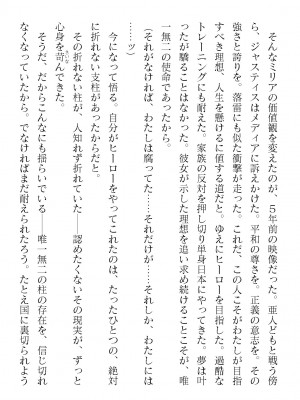 そんなミリアの価値観を変えたのが、５年前の映像だった。亜人どもと戦う傍
ら、ジャスティスはメディアに訴えかけた。平和の尊さを。正義の意志を。その
強さと誇りを。落雷にも似た衝撃が走った。これだ、この人こそがわたしが目指
すべき理想、人生を懸けるに値する道だと。ゆえにヒーローを目指した。過酷な
トレーニングにも耐えた。家族の反対を押し切り単身日本にやってきた。夢は叶
ったが驕ることはなかった。彼女が示した理想を追い求め続けることこそが、唯
一無二の使命であったから。
「それがなければ、わたしは腐ってた……それだけが……それしか、わたしには
……ッ」
今になって悟る。自分がヒーローをやってこれたのは、たったひとつの、絶対
に折れない支柱があったからだと。
その折れない柱が、人知れず折れていた――認めたくないその現実が、ずっと
心身を苛んできた。
そうだ、だからこんなにも揺らいでいる――唯一無二の柱の存在を、信じ切れ
なくなっていたから。でなければまだ耐えられたろう。たとえ国に裏切られよう